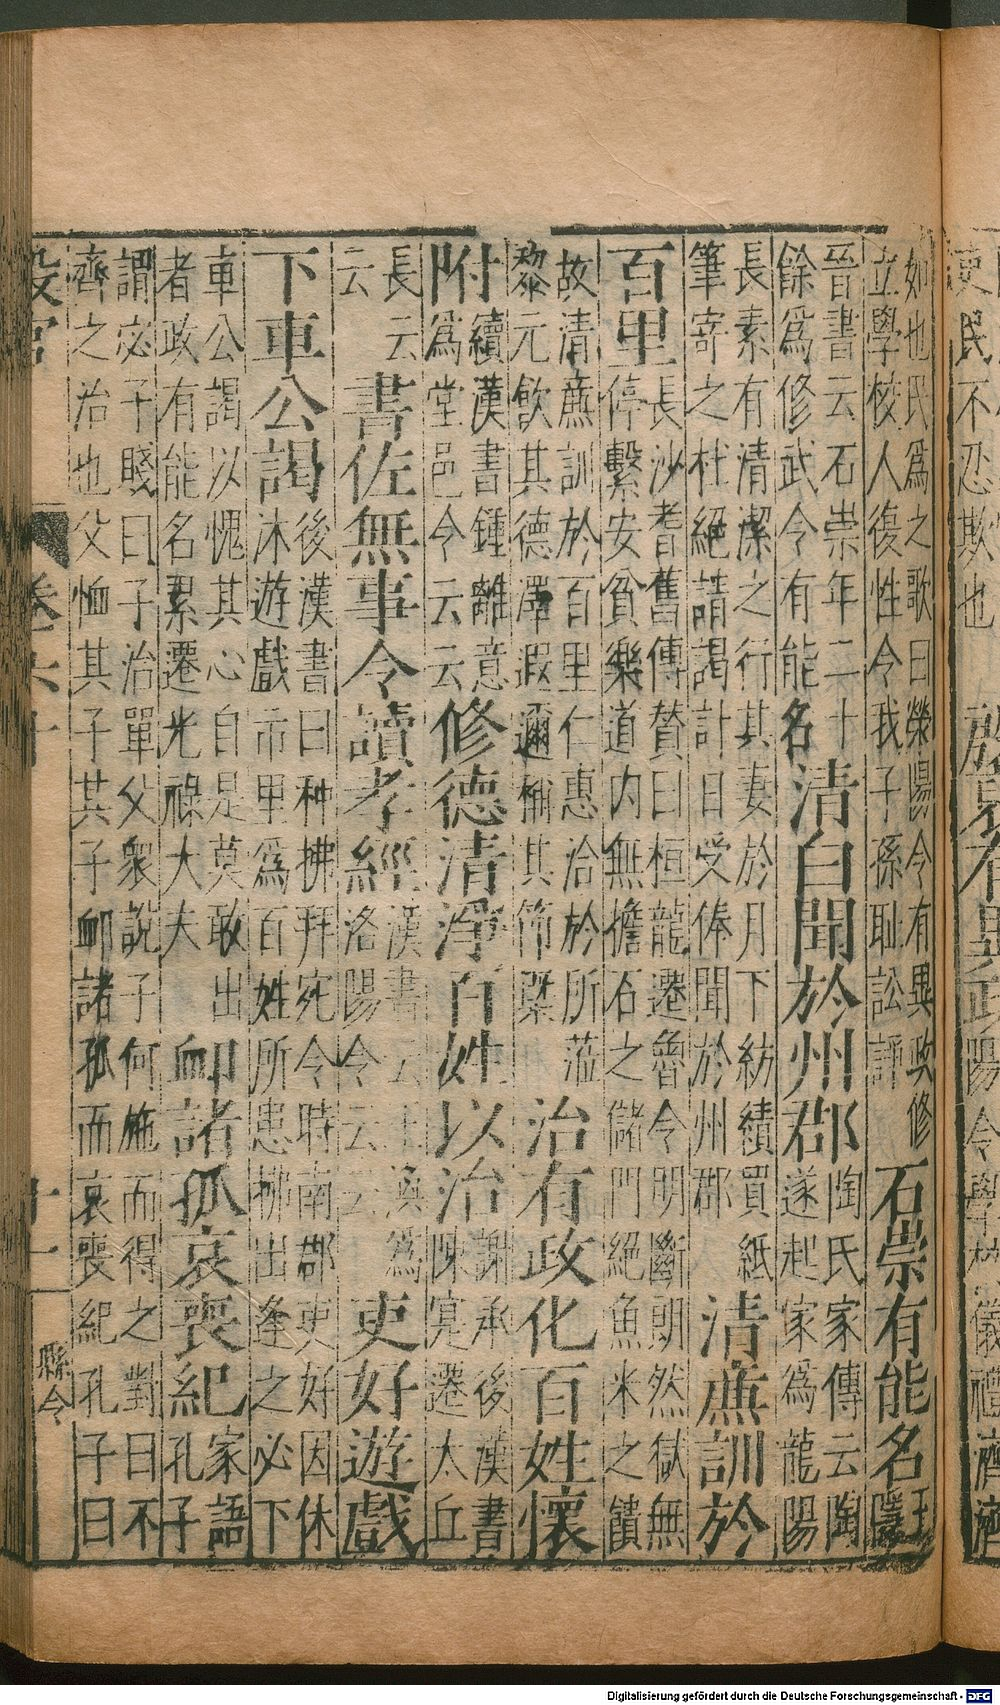 吏民不忍欺也
如也民爲之歌曰滎陽令有異政修
立學校人復性令我子孫耻訟評
石崇有能名
王
隱
晉書云石崇年二十
餘爲修武令有能名
清白聞於州郡
陶氏家傳云陶
遂起家爲龍陽
長素有清潔之行其妻於月下紡績買紙
筆寄之杜絕請謁計日受俸聞於州郡
清廉訓於
百里
長沙耆舊傳贊曰桓龍遷魯令明斷朗然獄無
停繫安貧樂道内無擔石之儲門絕魚米之饋
故清廉訓於百里仁惠洽於所蒞
黎元飲其德澤遐邇稱其節槩
治有政化百姓懷
附
續漢書鍾離意
爲堂邑令云云
修德清淨百姓以治
謝承後漢書
陳寔遷太丘
長云
云
書佐無事令讀孝經
漢書云王渙爲
洛陽令云云
吏好遊戲
下車公謁
後漢書曰种拂拜宛令時南郡吏好因休
沐遊戲市里爲百姓所患拂出逢之必下
車公謁以愧其心自是莫敢出
者政有能名累遷光祿大夫
卹諸孤哀喪紀
家語
孔子
謂宓子賤曰子治單父衆說子何施而得之對曰不
齊之治也父恤其子其子卹諸孤而哀喪紀孔子曰
設官
卷六十
十一
縣令
Digitalisierung gefördert durch die Deutsche Forschungsgemeinschaft - DFG